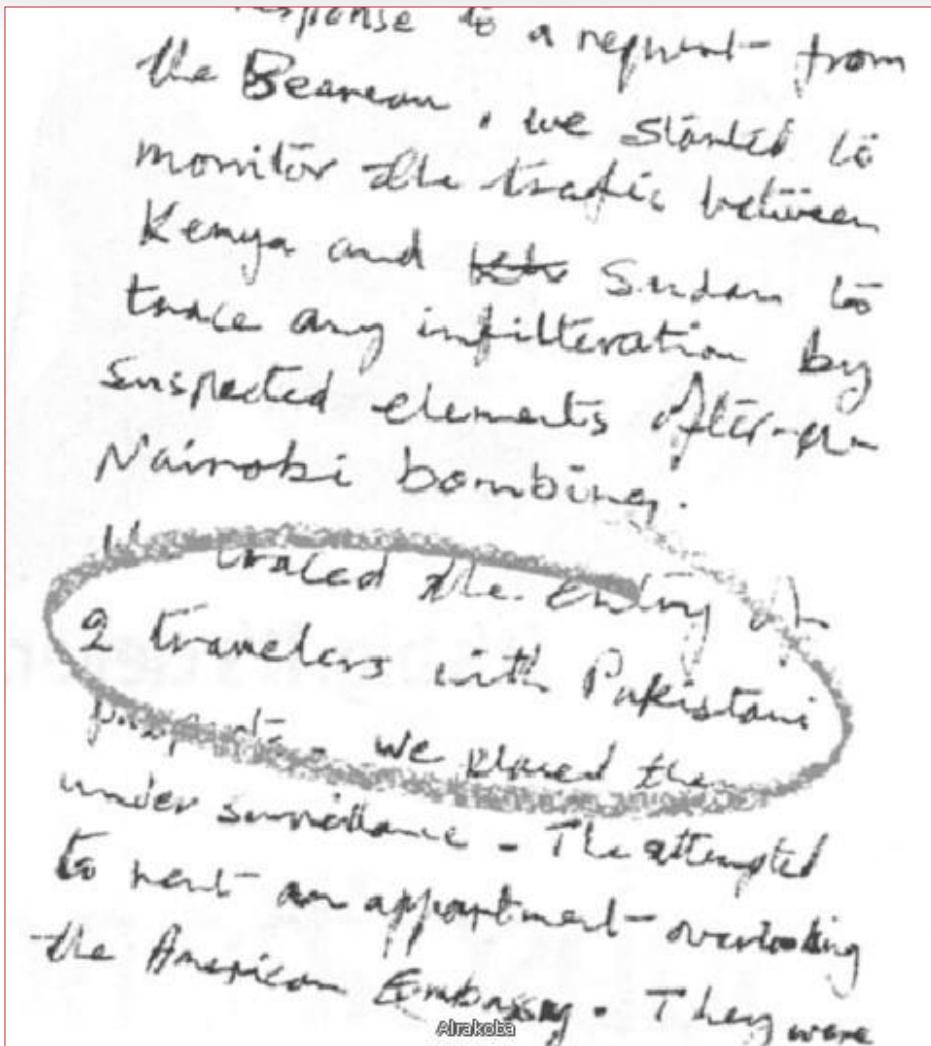 response to a request from
the Beareau, we started to
monitor the trafic between
Kenya and Sudan to
trace any infilteration by
suspected elements after
Nairobi bombing.
traced the entry of
2 travelers with Pakistani
we placed them
under surveillance - The attempted
to rent an appartment overlooking
the American Embassy. They were
Alrakoba